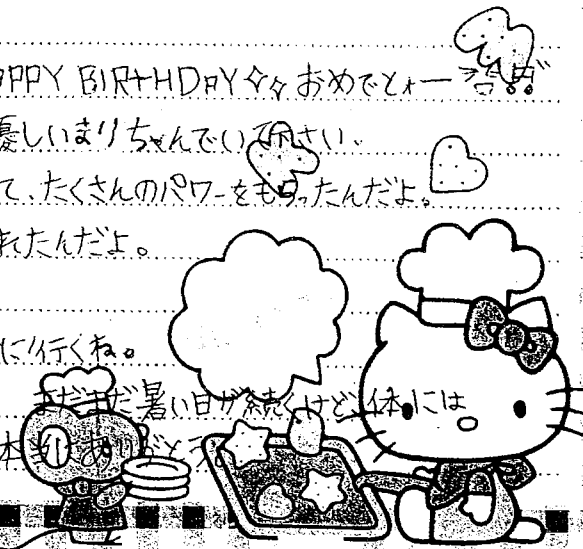 APPY BIRTHDAY☆☆おめでとォー
優しいまりちゃんでいて下さい、
て、たくさんのパワーをもらったんだよ。
れたんだよ。
に行くね。
まだまだ暑い日が続くけど、体には
本当はありがとうね